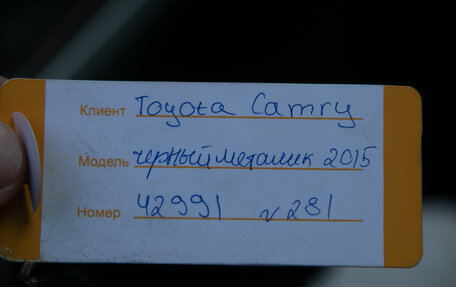 Клиент Toyota Camry
Модель черный металик 2015
Номер 42991 N 281